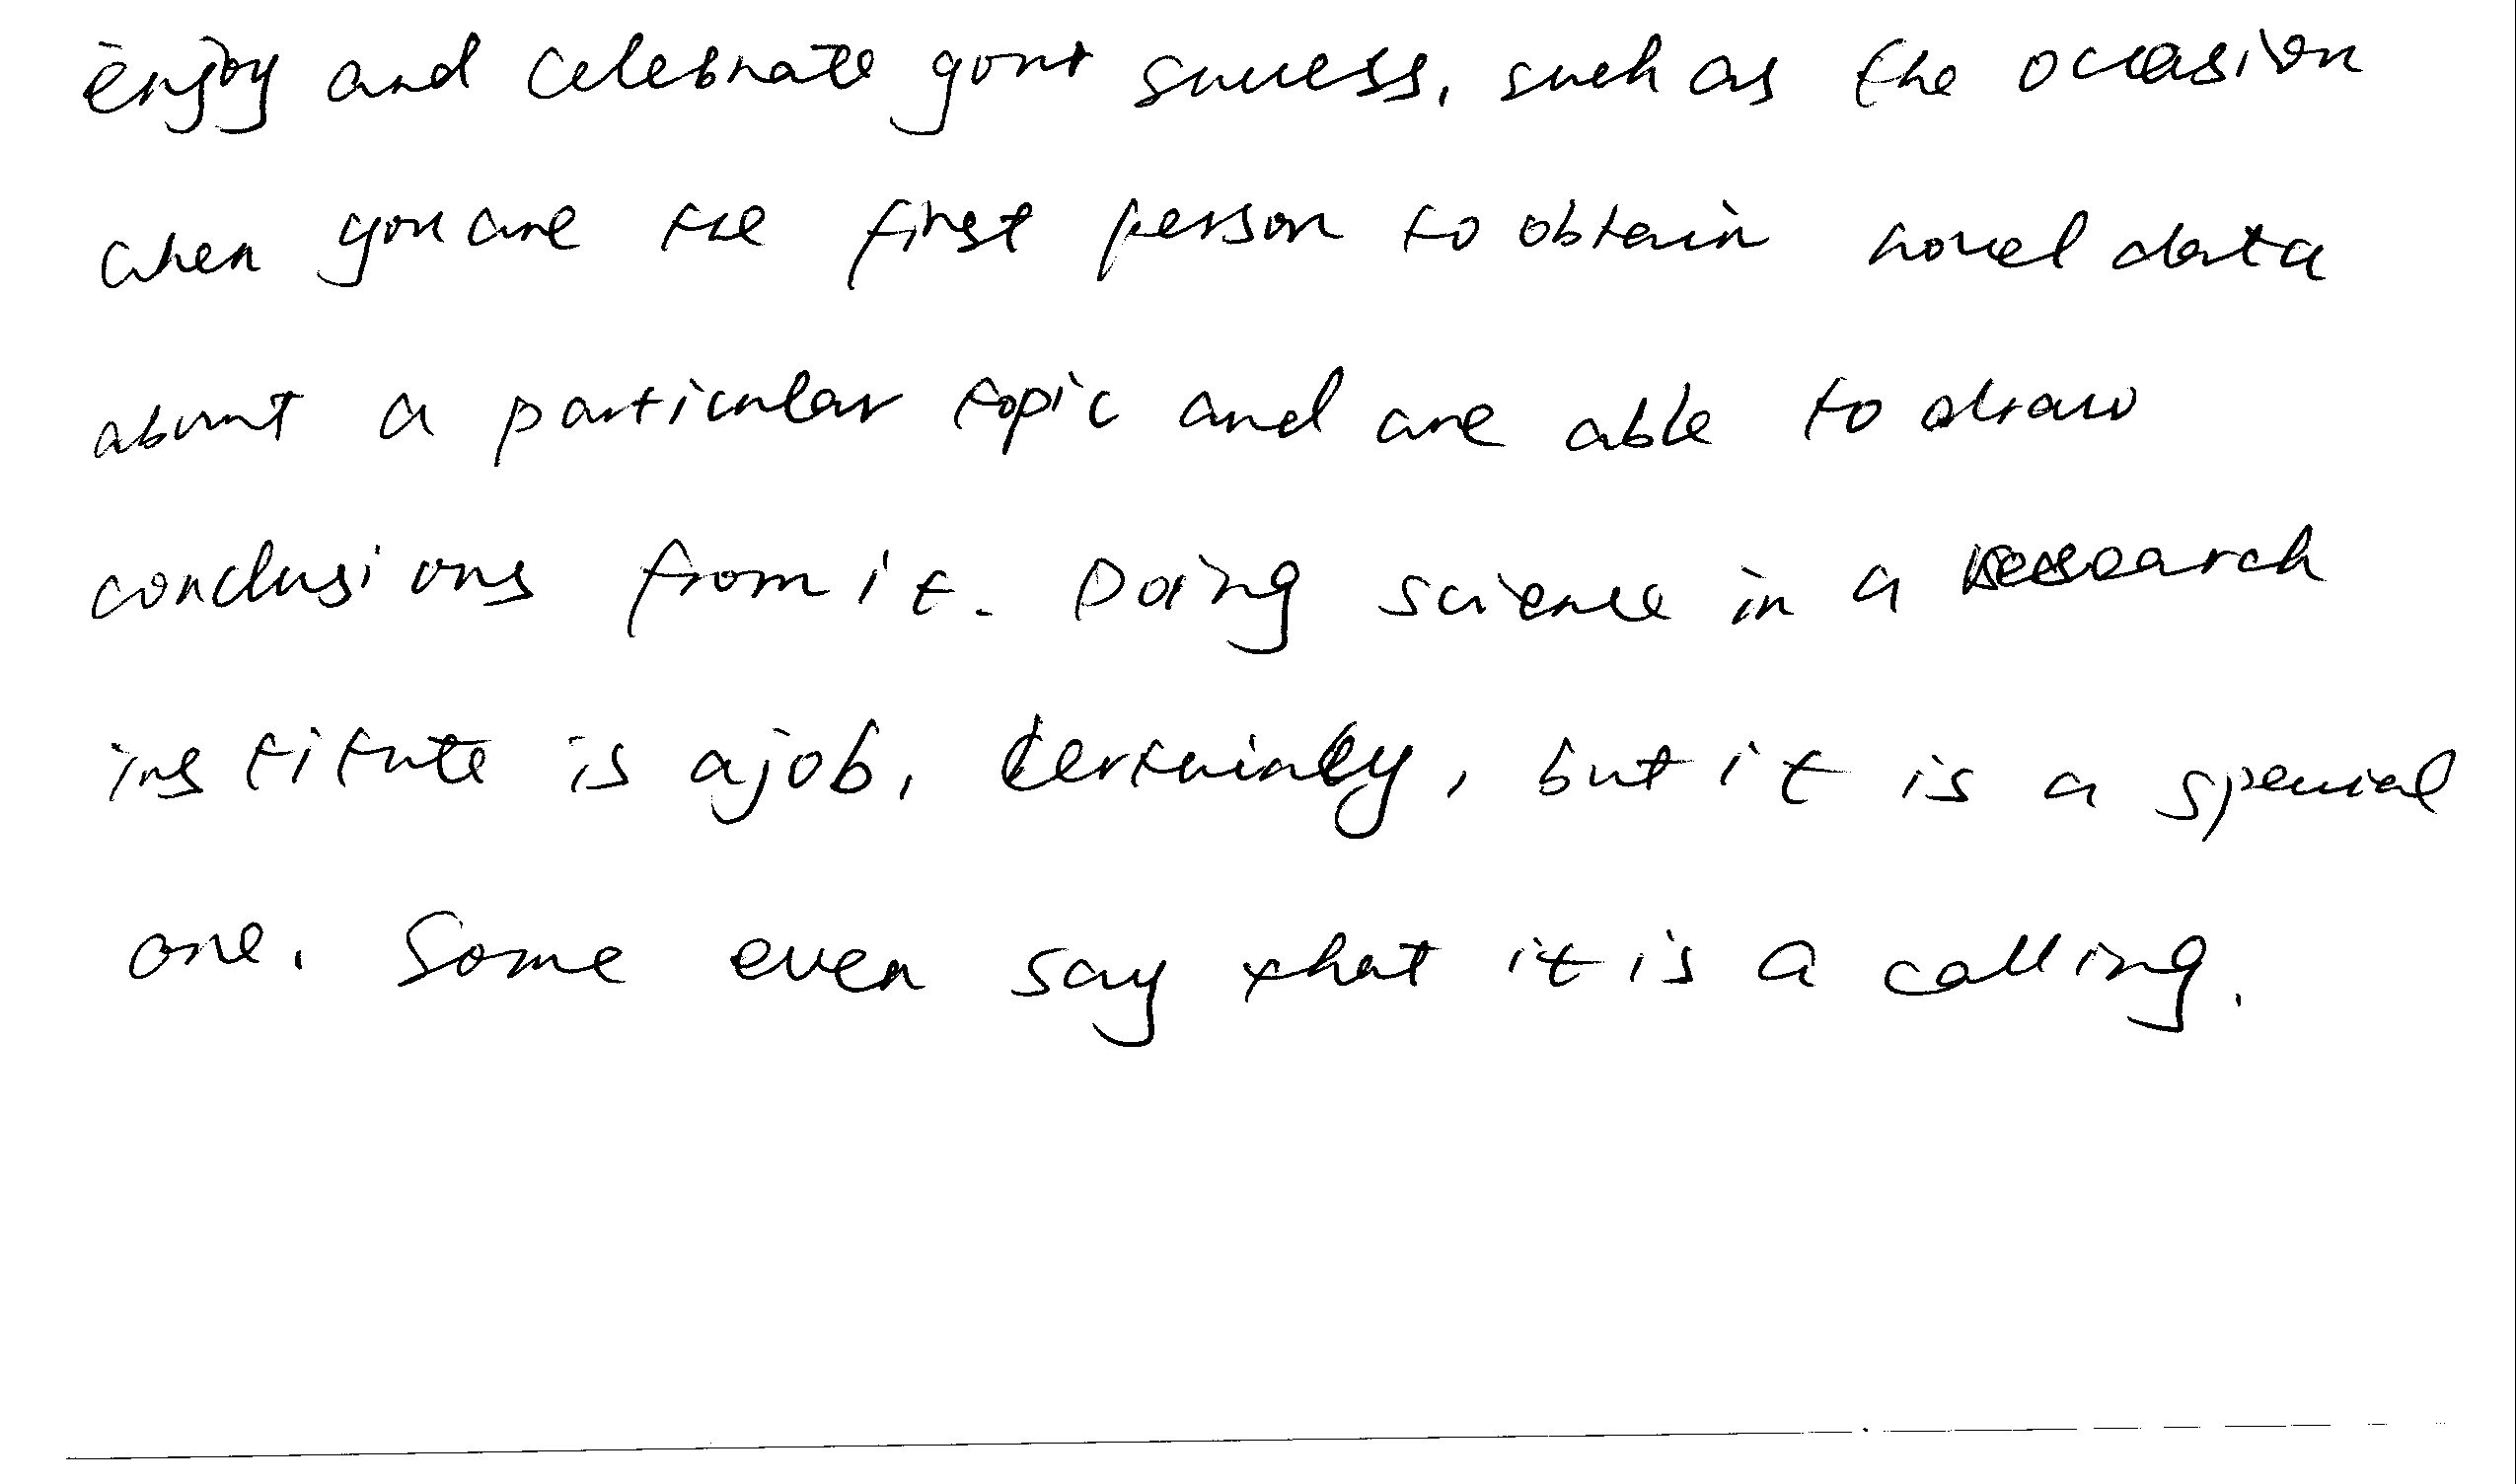 enjoy and celebrate your success, such as the occasion
when you are the first person to obtain novel data
about a particular topic and are able to draw
conclusions from it. Doing science in a research
institute is a job, certainly, but it is a special
one. Some even say that it is a calling.